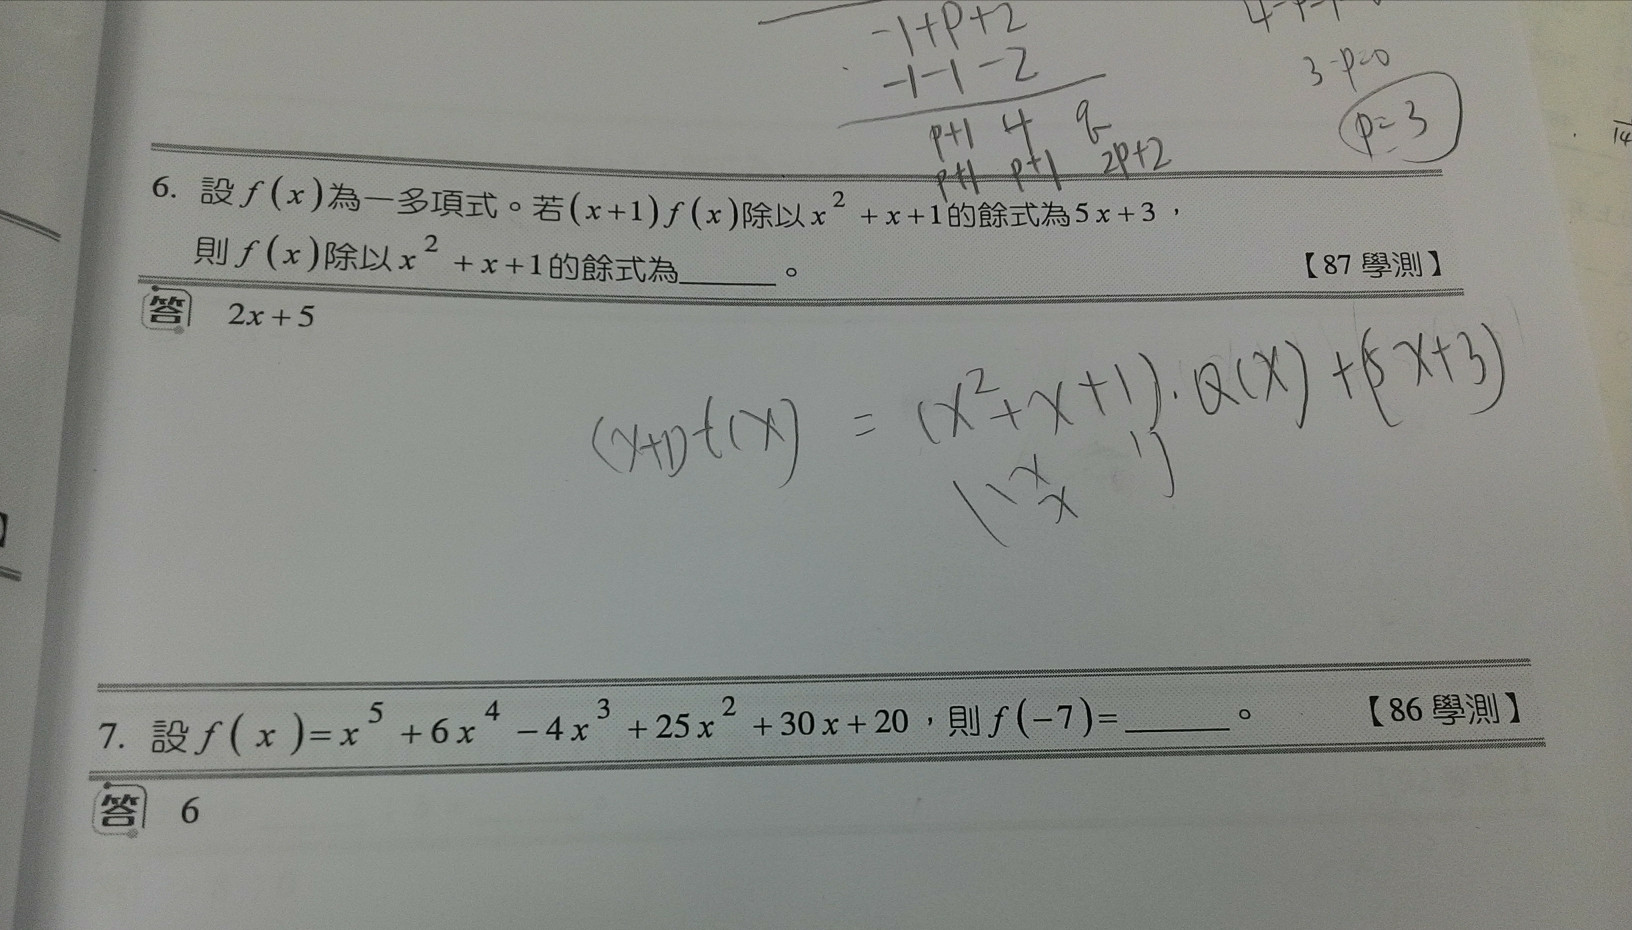 -1+P+2
-1-1-2
P+1 4 q
P+1 P+1 2P+2
3-P=0
P=3
14
6. 設f(x)為一多項式。若(x+1)f(x)除以x²+x+1的餘式為5x+3，
則f(x)除以x²+x+1的餘式為______。 【87 學測】
答 2x+5
(x+1)f(x) = (x²+x+1)·Q(x)+(5x+3)
7. 設f(x)=x⁵+6x⁴-4x³+25x²+30x+20，則f(-7)=______。 【86 學測】
答 6